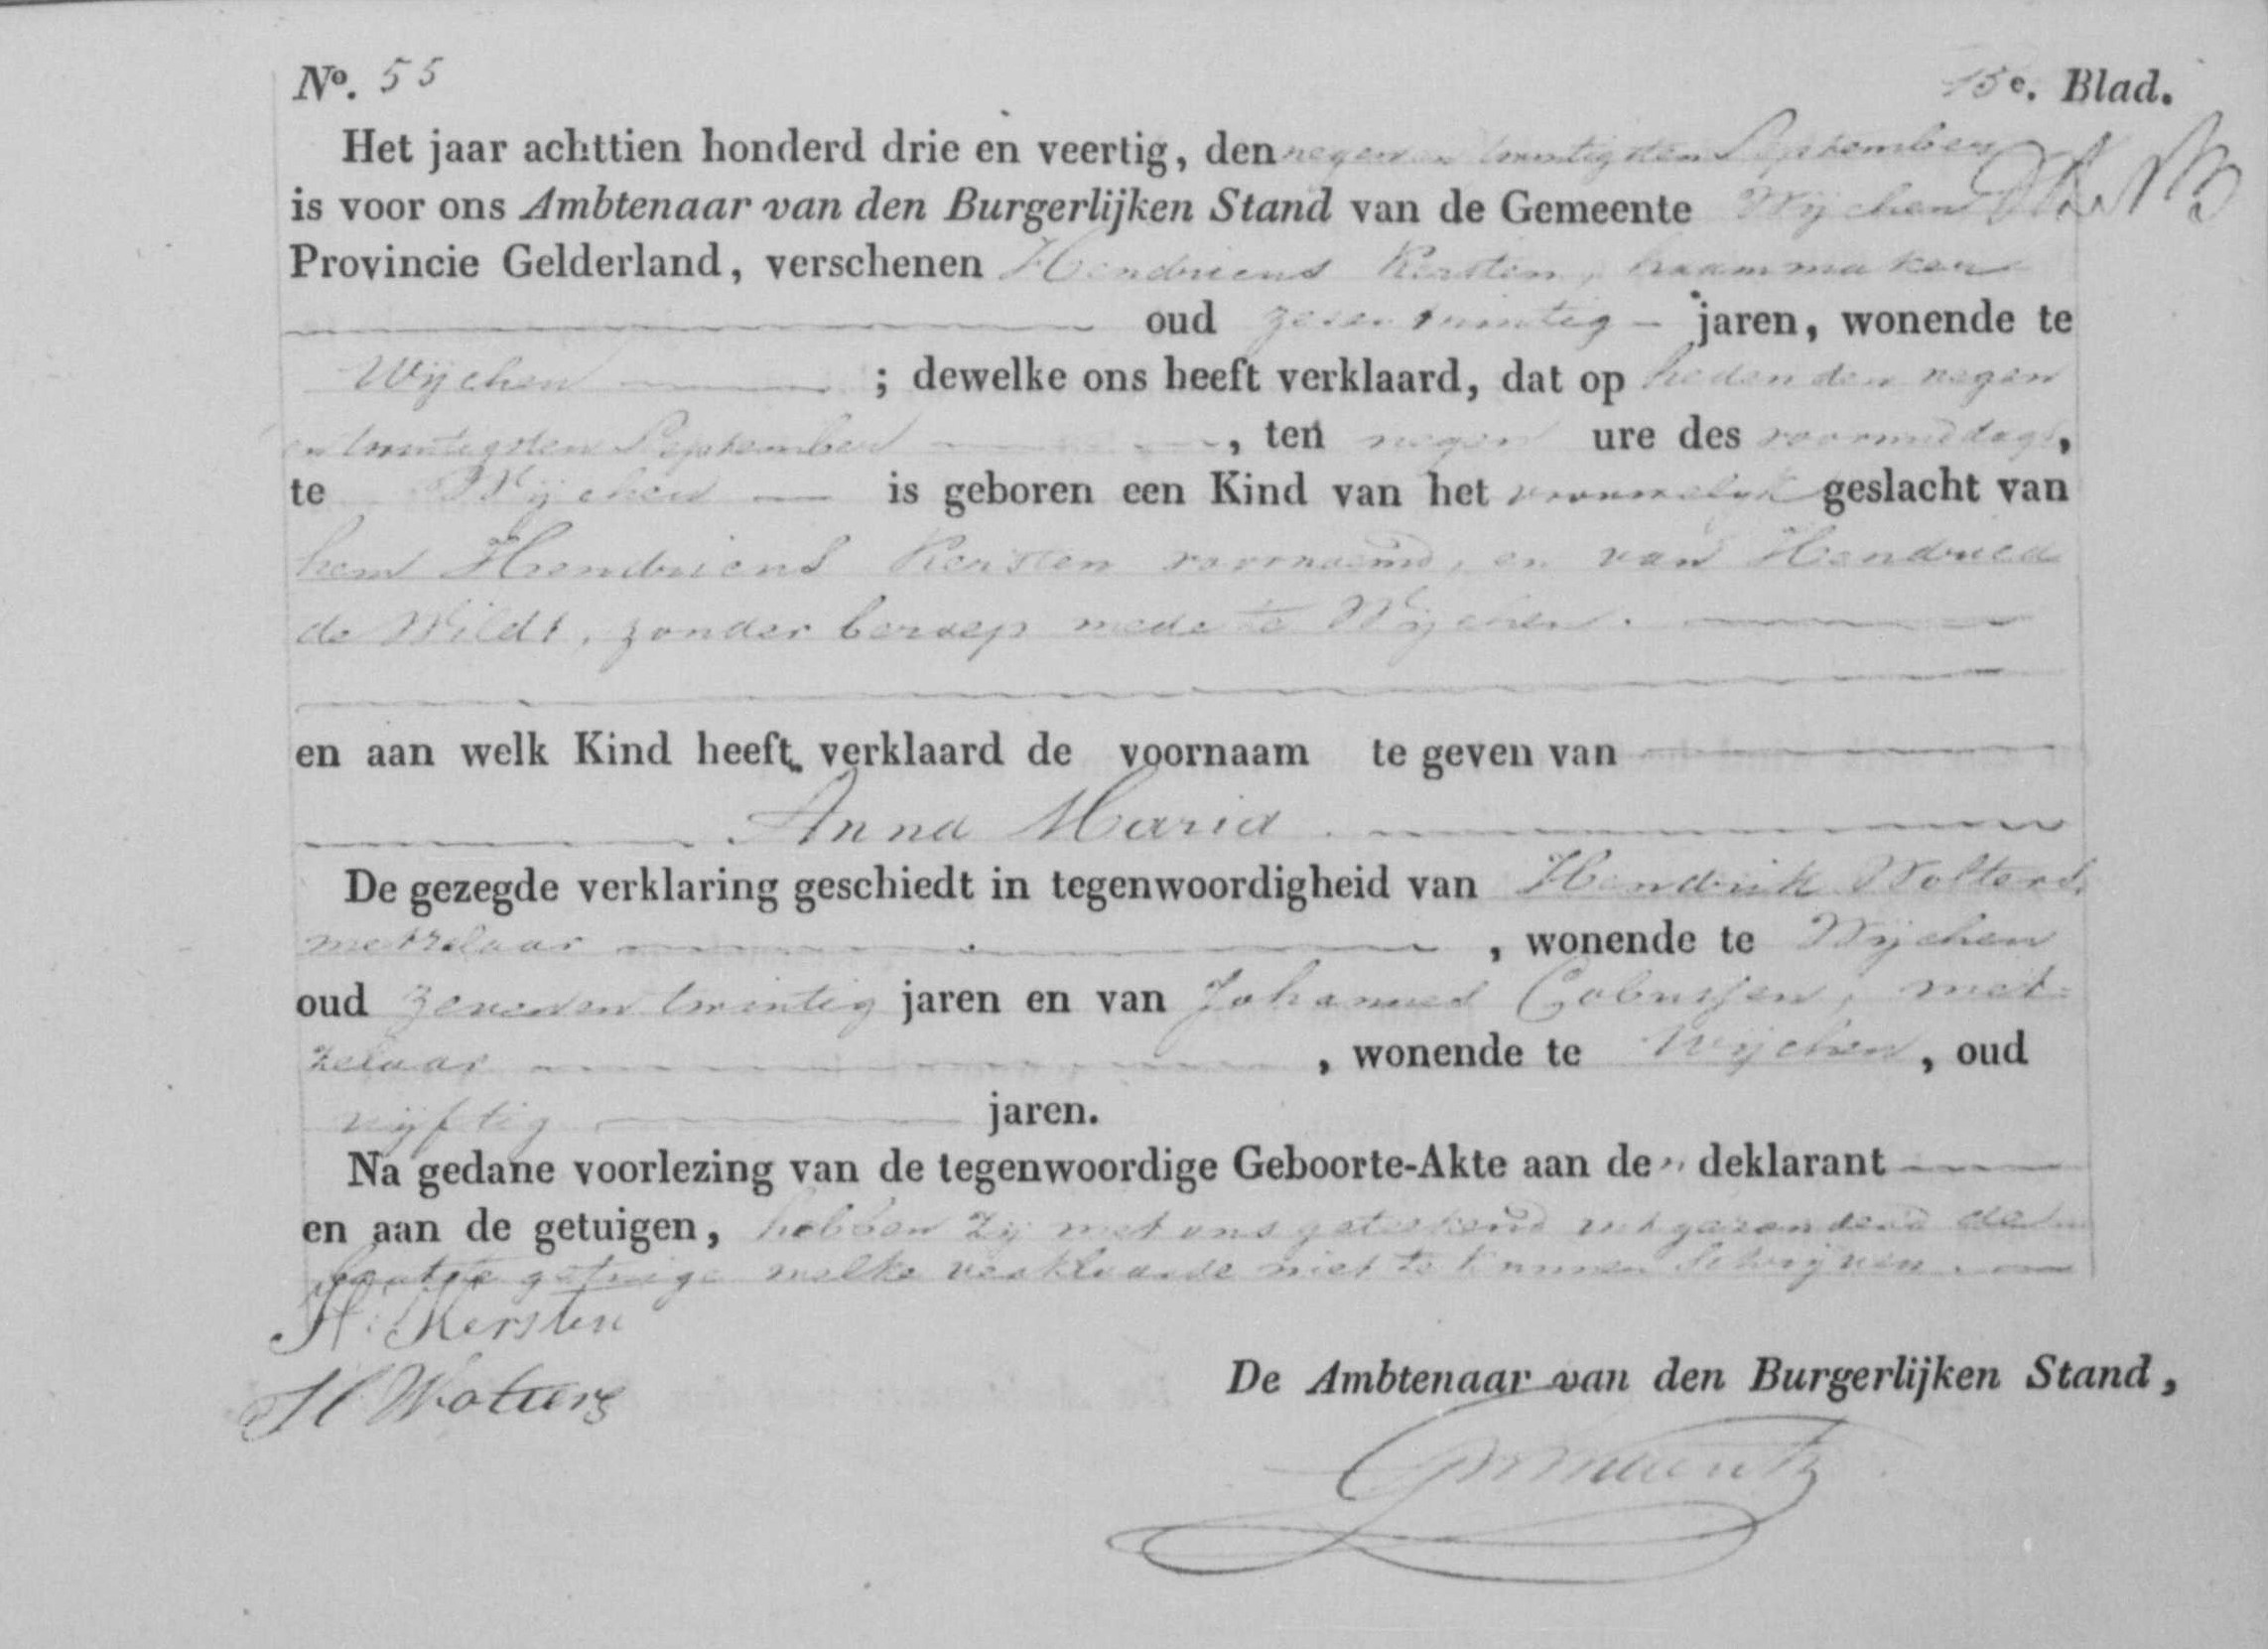 No. 55
15e. Blad.
Het jaar achttien honderd drie en veertig, den negen en twintigsten September
is voor ons Ambtenaar van den Burgerlijken Stand van de Gemeente Wijchen
Provincie Gelderland, verschenen Hendricus Kersten, haammaker
oud zesentwintig jaren, wonende te
Wijchen ; dewelke ons heeft verklaard, dat op heden den negen
en twintigsten September , ten negen ure des voormiddags,
te Wijchen is geboren een Kind van het vrouwelijk geslacht van
hem Hendricus Kersten voornoemd, en van Hendriea
de Wildt, zonder beroep mede te Wijchen.
en aan welk Kind heeft verklaard de voornaam te geven van
Anna Maria.
De gezegde verklaring geschiedt in tegenwoordigheid van Hendrik Wolters,
metzelaar , wonende te Wijchen
oud zevenentwintig jaren en van Johannes Cobussen, met=
zelaar , wonende te Wijchen, oud
vijftig jaren.
Na gedane voorlezing van de tegenwoordige Geboorte-Akte aan de deklarant
en aan de getuigen, hebben zij met ons geteekend uitgezonderd de
laatste getuige welke verklaarde niet te kunnen schrijven.
H. Kersten
H Wolters
De Ambtenaar van den Burgerlijken Stand,